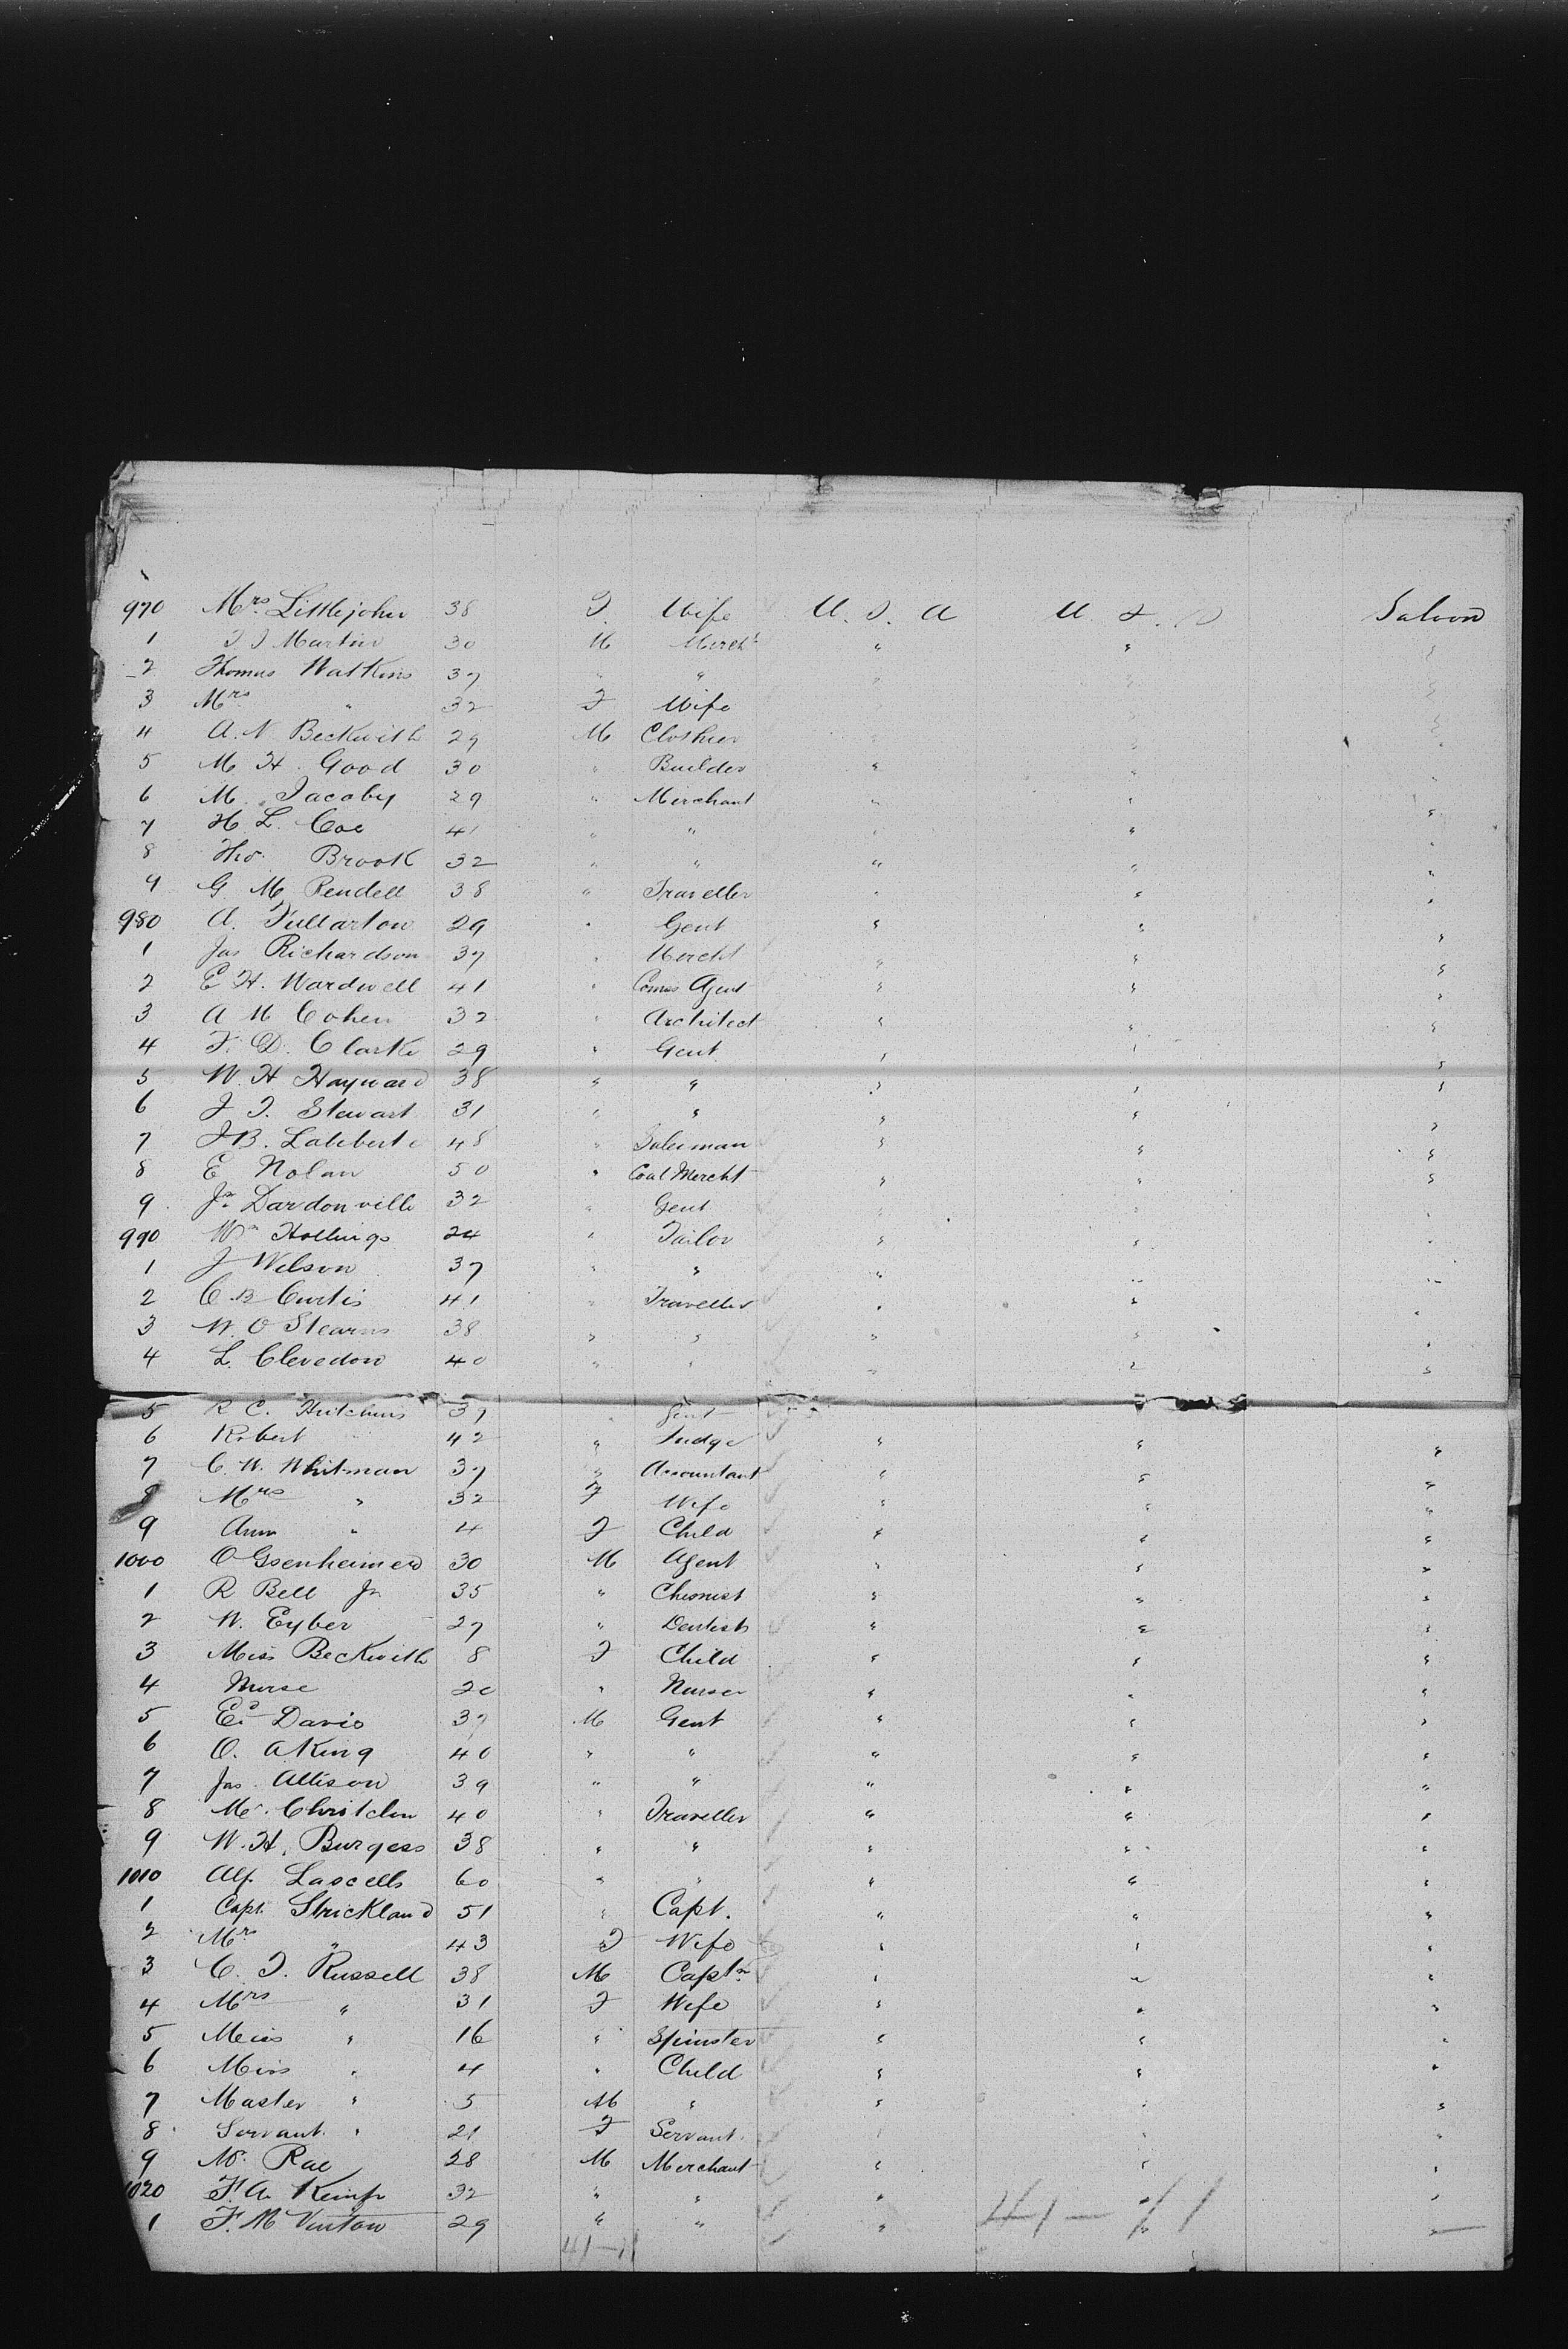 970 Mrs. Littlejohn 38 F. Wife U. S. A U. S. Saloon
1 Martin 30 M Mercht " "
2 Thomas Watkins 37 " "
3 Mrs " 32 F Wife
4 A. N Beckwith 29 M Clothier
5 M H. Good 30 " Builder " " "
6 M. Jacoby 29 " Merchant " " "
7 H L. Coe 41 " " " " "
8 Tho. Brook 32 " " " " "
9 G M Rendell 38 " Traveller " " "
980 A. Fullarton 29 " Gent " " "
1 Jas Richardson 37 " Mercht " " "
2 E H. Wardwell 41 " Comss Agent " " "
3 A M Cohen 32 " Architect " " "
4 F. D. Clarke 29 " Gent " " "
5 W. H Hayward 38 " " " " "
6 J. T. Stewart 31 " " " " "
7 J B. 48 " Salesman " " "
8 E Nolan 50 " Coal Mercht " " "
9 Jn. Dardonville 32 " Gent " " "
990 Wm Hollings 24 " Tailor " " "
1 J Wilson 37 " " " " "
2 C. B Curtis 41 " Traveller " " "
3 W. O Stearns 38 " " " " "
4 L. Clevedon 40 " " " " "
5 R C. Hutchins 37 " Gent
6 Robert " 42 " Judge " " "
7 C. W. Whitman 37 " Accountant " " "
8 Mrs " 32 F Wife " " "
9 Ann " 4 F Child " " "
1000 30 M Agent " " "
1 R Bell Jr 35 " Chemist " " "
2 W. Eyber 27 " Dentist " " "
3 Miss Beckwith 8 F Child " " "
4 Nurse 20 " Nurse " " "
5 Ed. Davis 37 M Gent " " "
6 O. A King 40 " " " " "
7 Jas. Allison 39 " " " " "
8 Mr. 40 " Traveller " " "
9 W. H. Burgess 38 " " " " "
1010 Alf. Lascells 60 " " " " "
1 Capt. Strickland 51 " Capt. " " "
2 Mrs " 43 F Wife " " "
3 C. T. Russell 38 M Captn. " " "
4 Mrs " 31 F Wife " " "
5 Miss " 16 " Spinster " " "
6 Miss " 4 " Child " " "
7 Master " 5 M " " " "
8 Servant " 21 F Servant " " "
9 Mr. Rae 28 M Merchant " " "
1020 F. A. Kemp 32 " " " " "
1 F. M Vinton 29 " " " " "
41 — 11 41 — 11